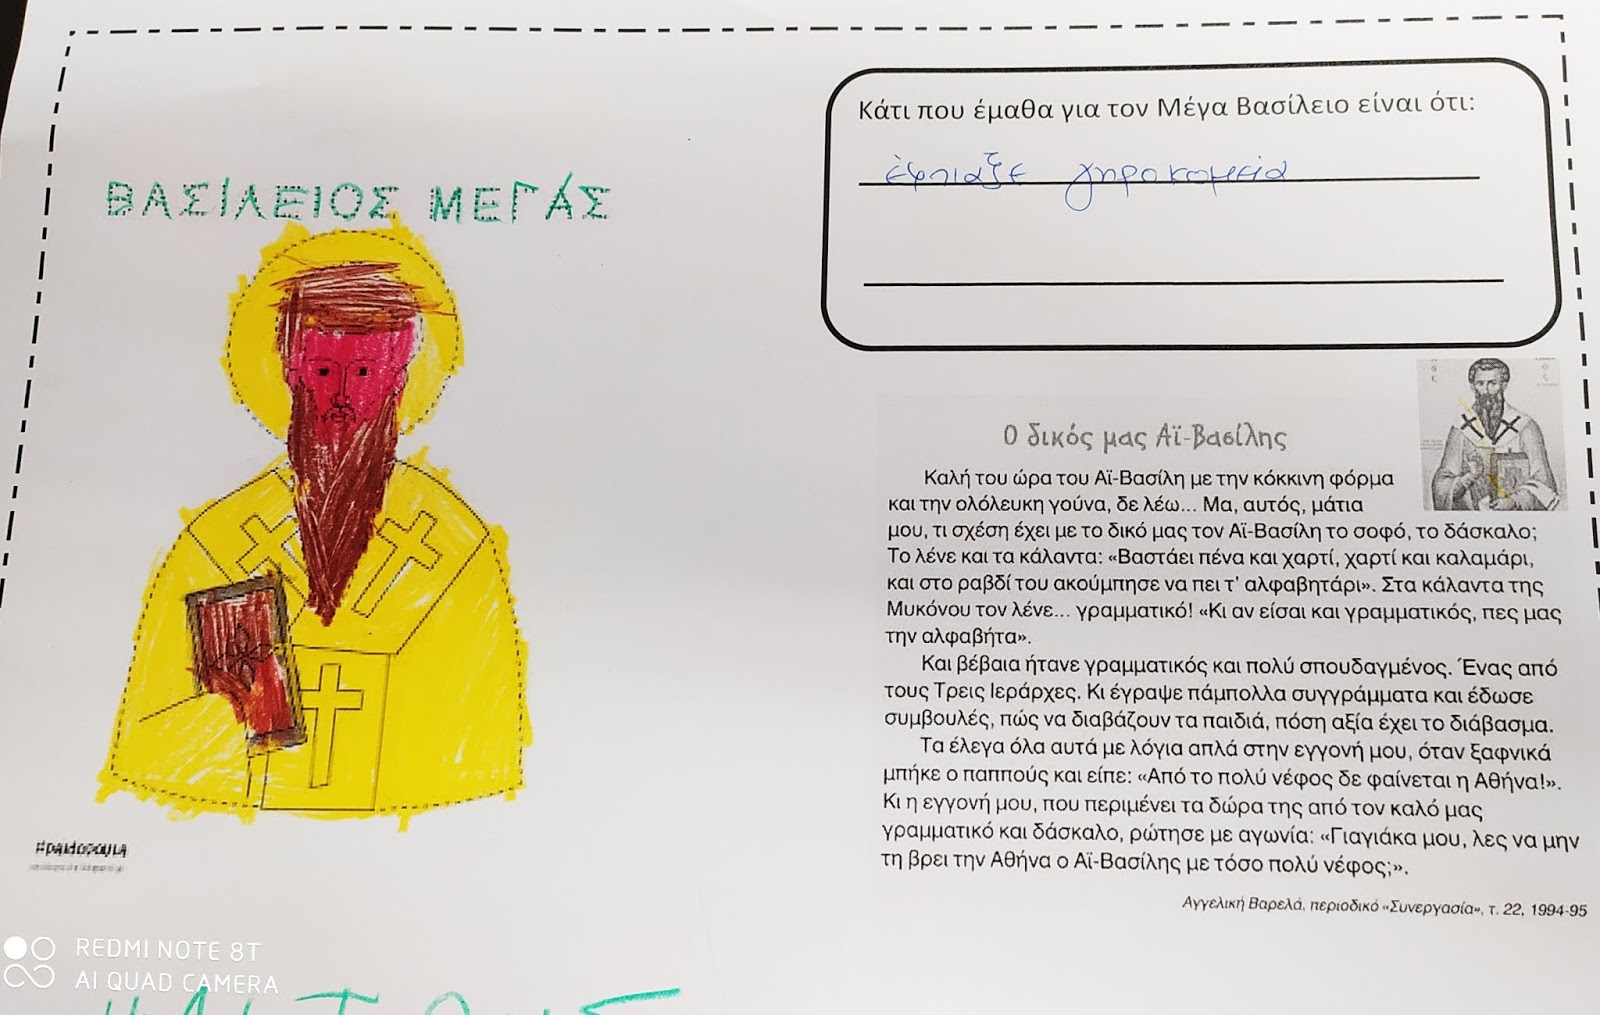 ΒΑΣΊΛΕΙΟΣ ΜΕΓΆΣ
Κάτι που έμαθα για τον Μέγα Βασίλειο είναι ότι:
έφτιαξε γηροκομεία
Ο δικός μας Αϊ-Βασίλης
Καλή του ώρα του Αϊ-Βασίλη με την κόκκινη φόρμα
και την ολόλευκη γούνα, δε λέω... Μα, αυτός, μάτια
μου, τι σχέση έχει με το δικό μας τον Αϊ-Βασίλη το σοφό, το δάσκαλο;
Το λένε και τα κάλαντα: «Βαστάει πένα και χαρτί, χαρτί και καλαμάρι,
και στο ραβδί του ακούμπησε να πει τ' αλφαβητάρι». Στα κάλαντα της
Μυκόνου τον λένε... γραμματικό! «Κι αν είσαι και γραμματικός, πες μας
την αλφαβήτα».
Και βέβαια ήτανε γραμματικός και πολύ σπουδαγμένος. Ένας από
τους Τρεις Ιεράρχες. Κι έγραψε πάμπολλα συγγράμματα και έδωσε
συμβουλές, πώς να διαβάζουν τα παιδιά, πόση αξία έχει το διάβασμα.
Τα έλεγα όλα αυτά με λόγια απλά στην εγγονή μου, όταν ξαφνικά
μπήκε ο παππούς και είπε: «Από το πολύ νέφος δε φαίνεται η Αθήνα!».
Κι η εγγονή μου, που περιμένει τα δώρα της από τον καλό μας
γραμματικό και δάσκαλο, ρώτησε με αγωνία: «Γιαγιάκα μου, λες να μην
τη βρει την Αθήνα ο Αϊ-Βασίλης με τόσο πολύ νέφος;».
Αγγελική Βαρελά, περιοδικό «Συνεργασία», τ. 22, 1994-95
REDMI NOTE 8T
AI QUAD CAMERA